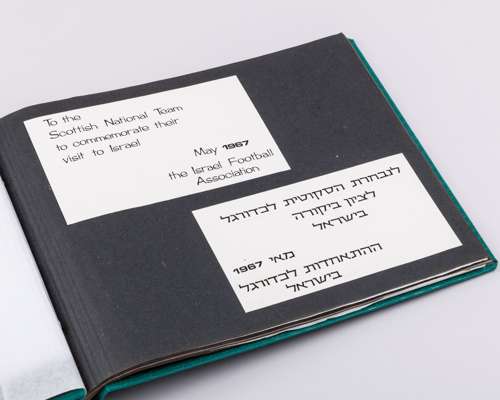 To the
Scottish National Team
to commemorate their
visit to Israel
May 1967
the Israel Football
Association
לנבחרת הסקוטית לכדורגל
לציון ביקורה
בישראל
מאי 1967
ההתאחדות לכדורגל
בישראל